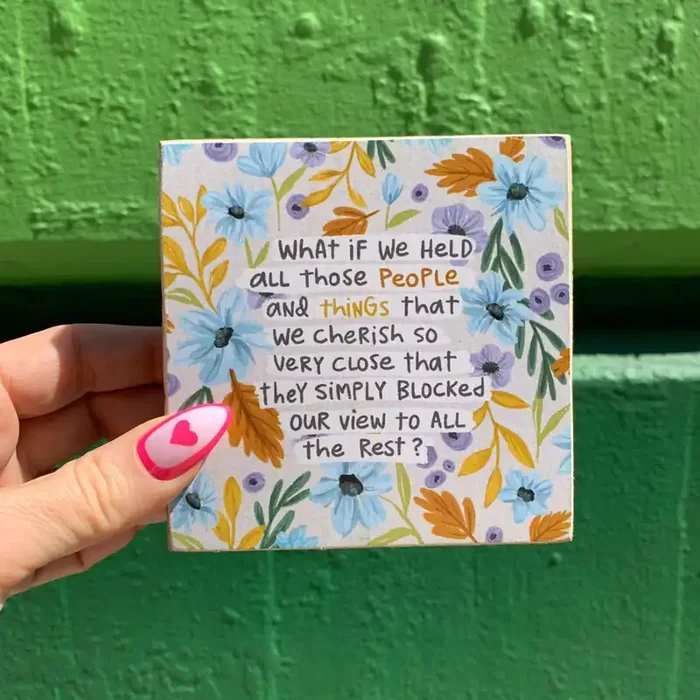 WHAT IF WE HELD
ALL THOSE PEOPLE
AND THINGS THAT
WE CHERISH SO
VERY CLOSE THAT
THEY SIMPLY BLOCKED
OUR VIEW TO ALL
THE REST?